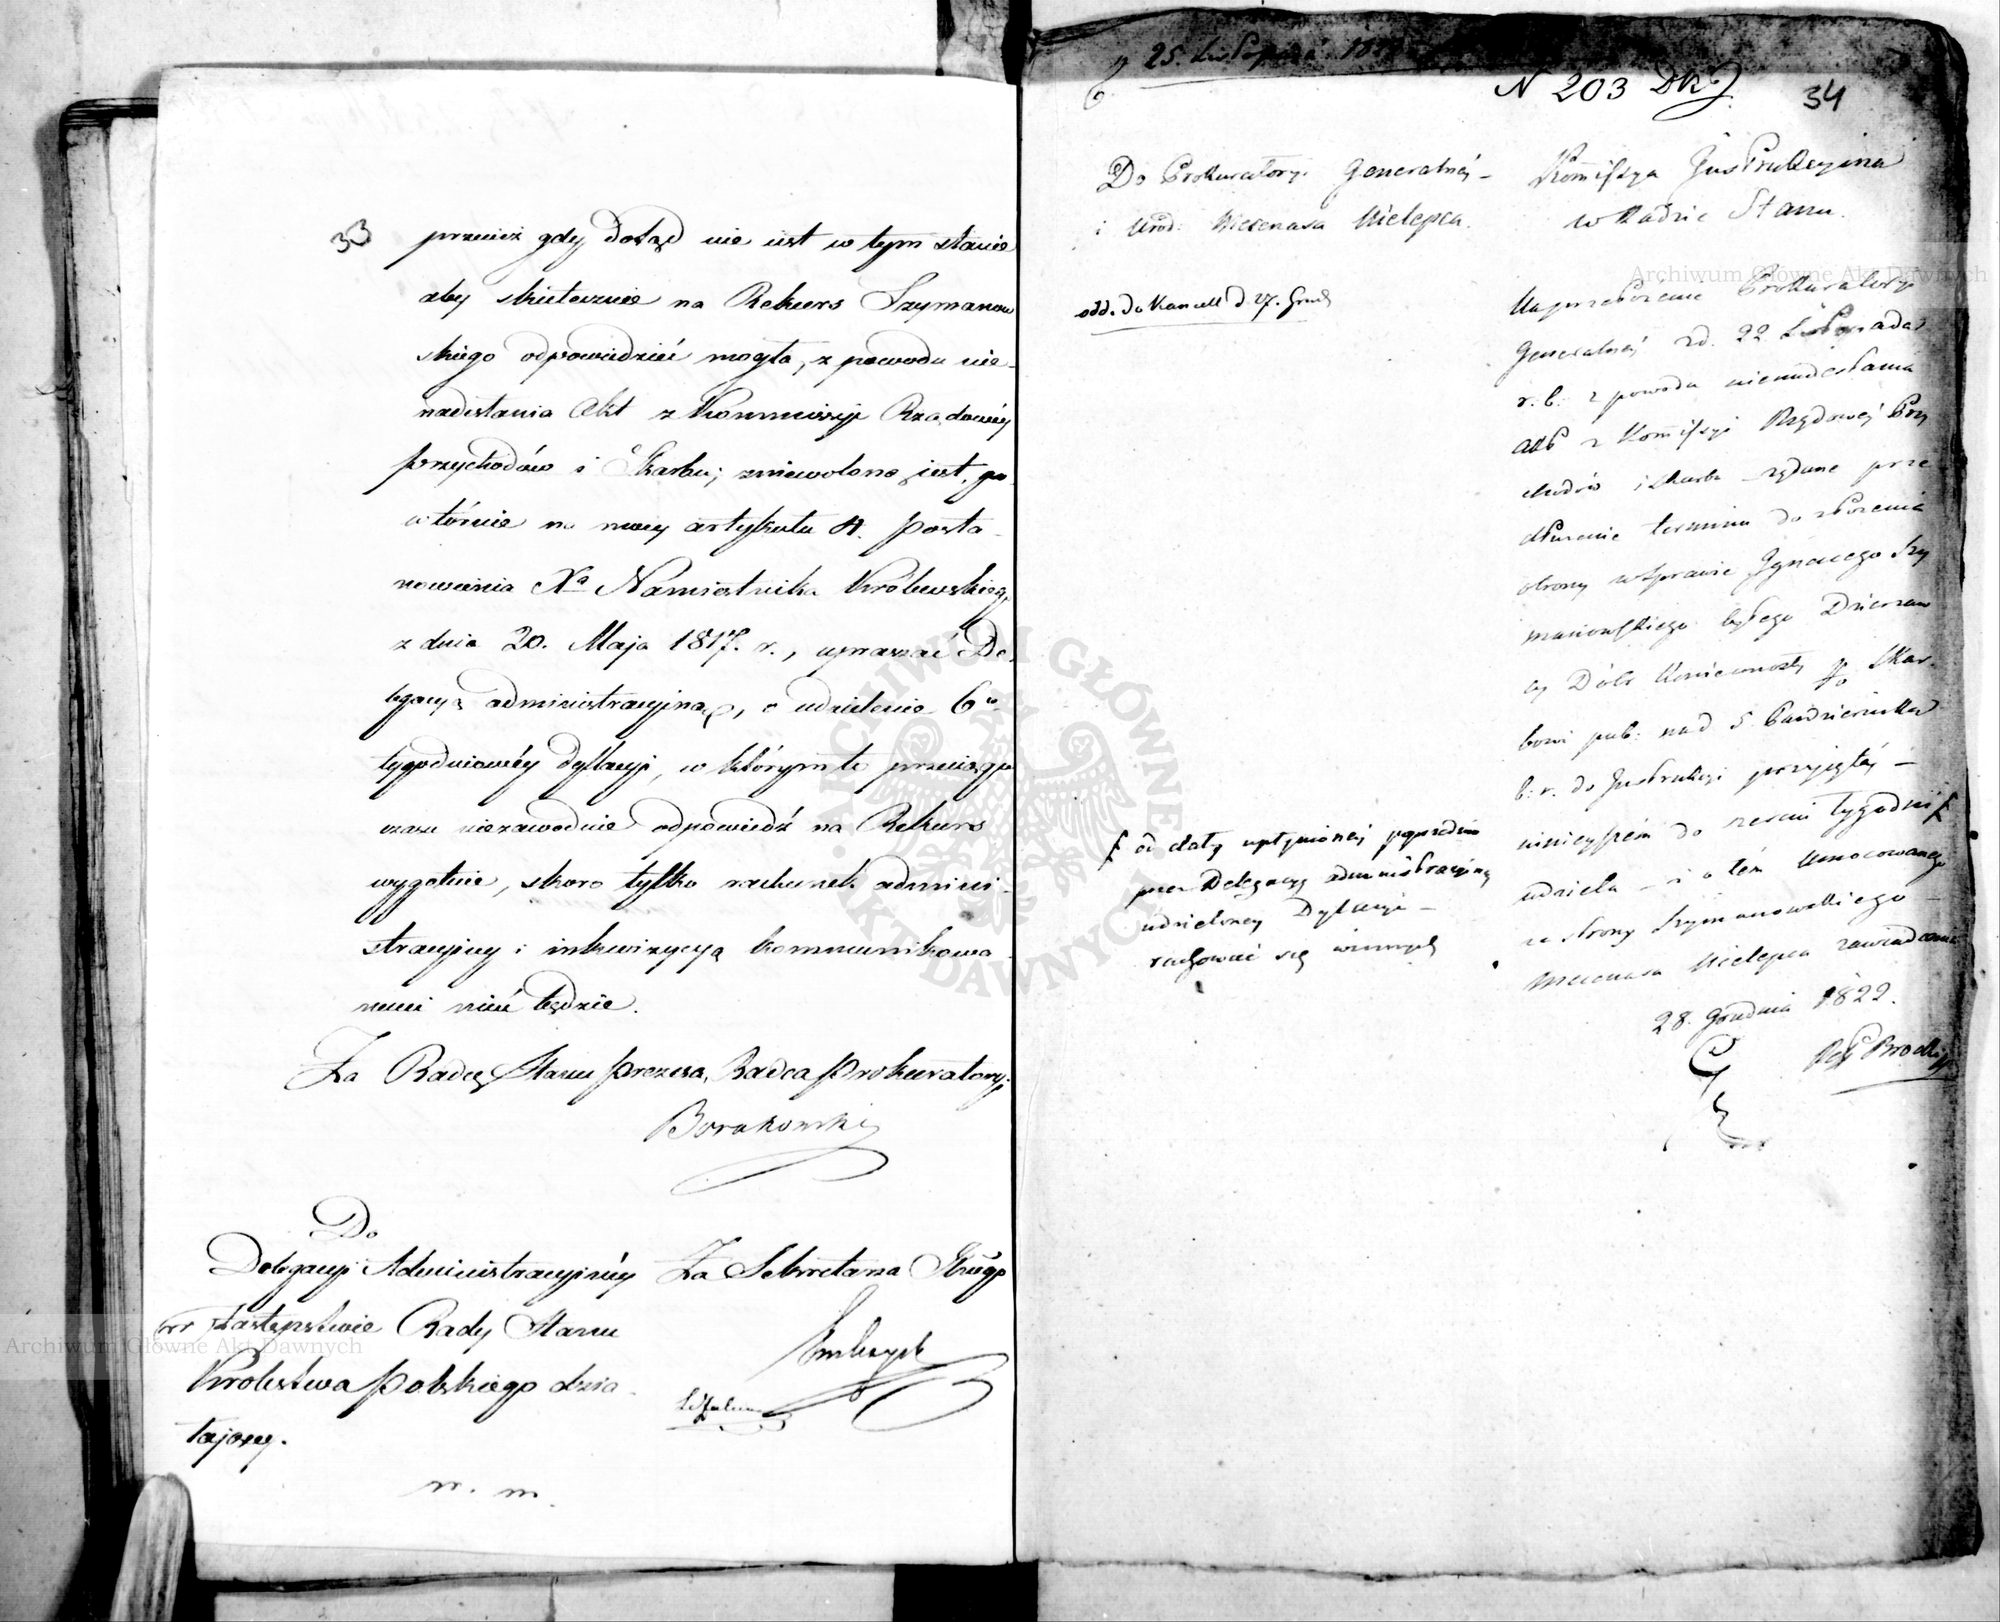 33
przecież gdy dotąd nie iest w tym stanie
aby skutecznie na Rekurs Szymanow
skiego odpowiedzieć mogła, z powodu nie-
nadesłania Akt z Kommissyi Rządowéy
Przychodów i Skarbu; zniewolona iest, po
wtórnie na mocy artykułu 4. Posta-
nowienia Xa Namiestnika Królewskiego
z dnia 20. Maja 1817. r., upraszać De
legacyą administracyjną, o udzielenie 6cio
tygodniowéy dylacyi, w którymto przeciągu
czasu niezawodnie odpowiedź na Rekurs
wygotuie, skoro tylko rachunek admini-
stracyiny i inkwizycyą kommunikowa
nemi mieć będzie.
Za Radcę Stanu Prezesa, Radca Prokuratoryi
Borakowski
Do
Delegacyi Administracyinéy
w Zastępstwie Rady Stanu
Królestwa Polskiego dzia-
łaiącey.
Za Sekretarza Jlnego
25. Listopada
N 203 DKJ
34
Do Prokuratoryi Generalnéj -
i Urod: Mecenasa Kielepca.
odd. do Kancell d 27. Grud
Komissya Instrukcyina
w Radzie Stanu.
Na przełożenie Prokuratoryi
Generalnéj z d. 22 Listopada
r. b. z powodu nienadesłania
akt z Komissyi Rządowéj Przy
chodów i Skarbu żądane prze
dłużenie terminu do złożenia
obrony w sprawie Ignacego Szy
manowskiego byłego Dzierżaw
cy Dóbr Koniecmosty Skar-
bowi pub: na d 5. Października
b: r. do Instrukcyi przyiętéj -
niniejszém do sześciu tygodni
udziela - i o tém Umocowanego
ze strony Szymanowskiego -
Mecenasa Kielepca zawiadamia
od daty upłynionéj poprzednio
przez Delegacyą administracyjną
udzieloney Dylacyi -
rachować się winnych
28. Grudnia 1822.